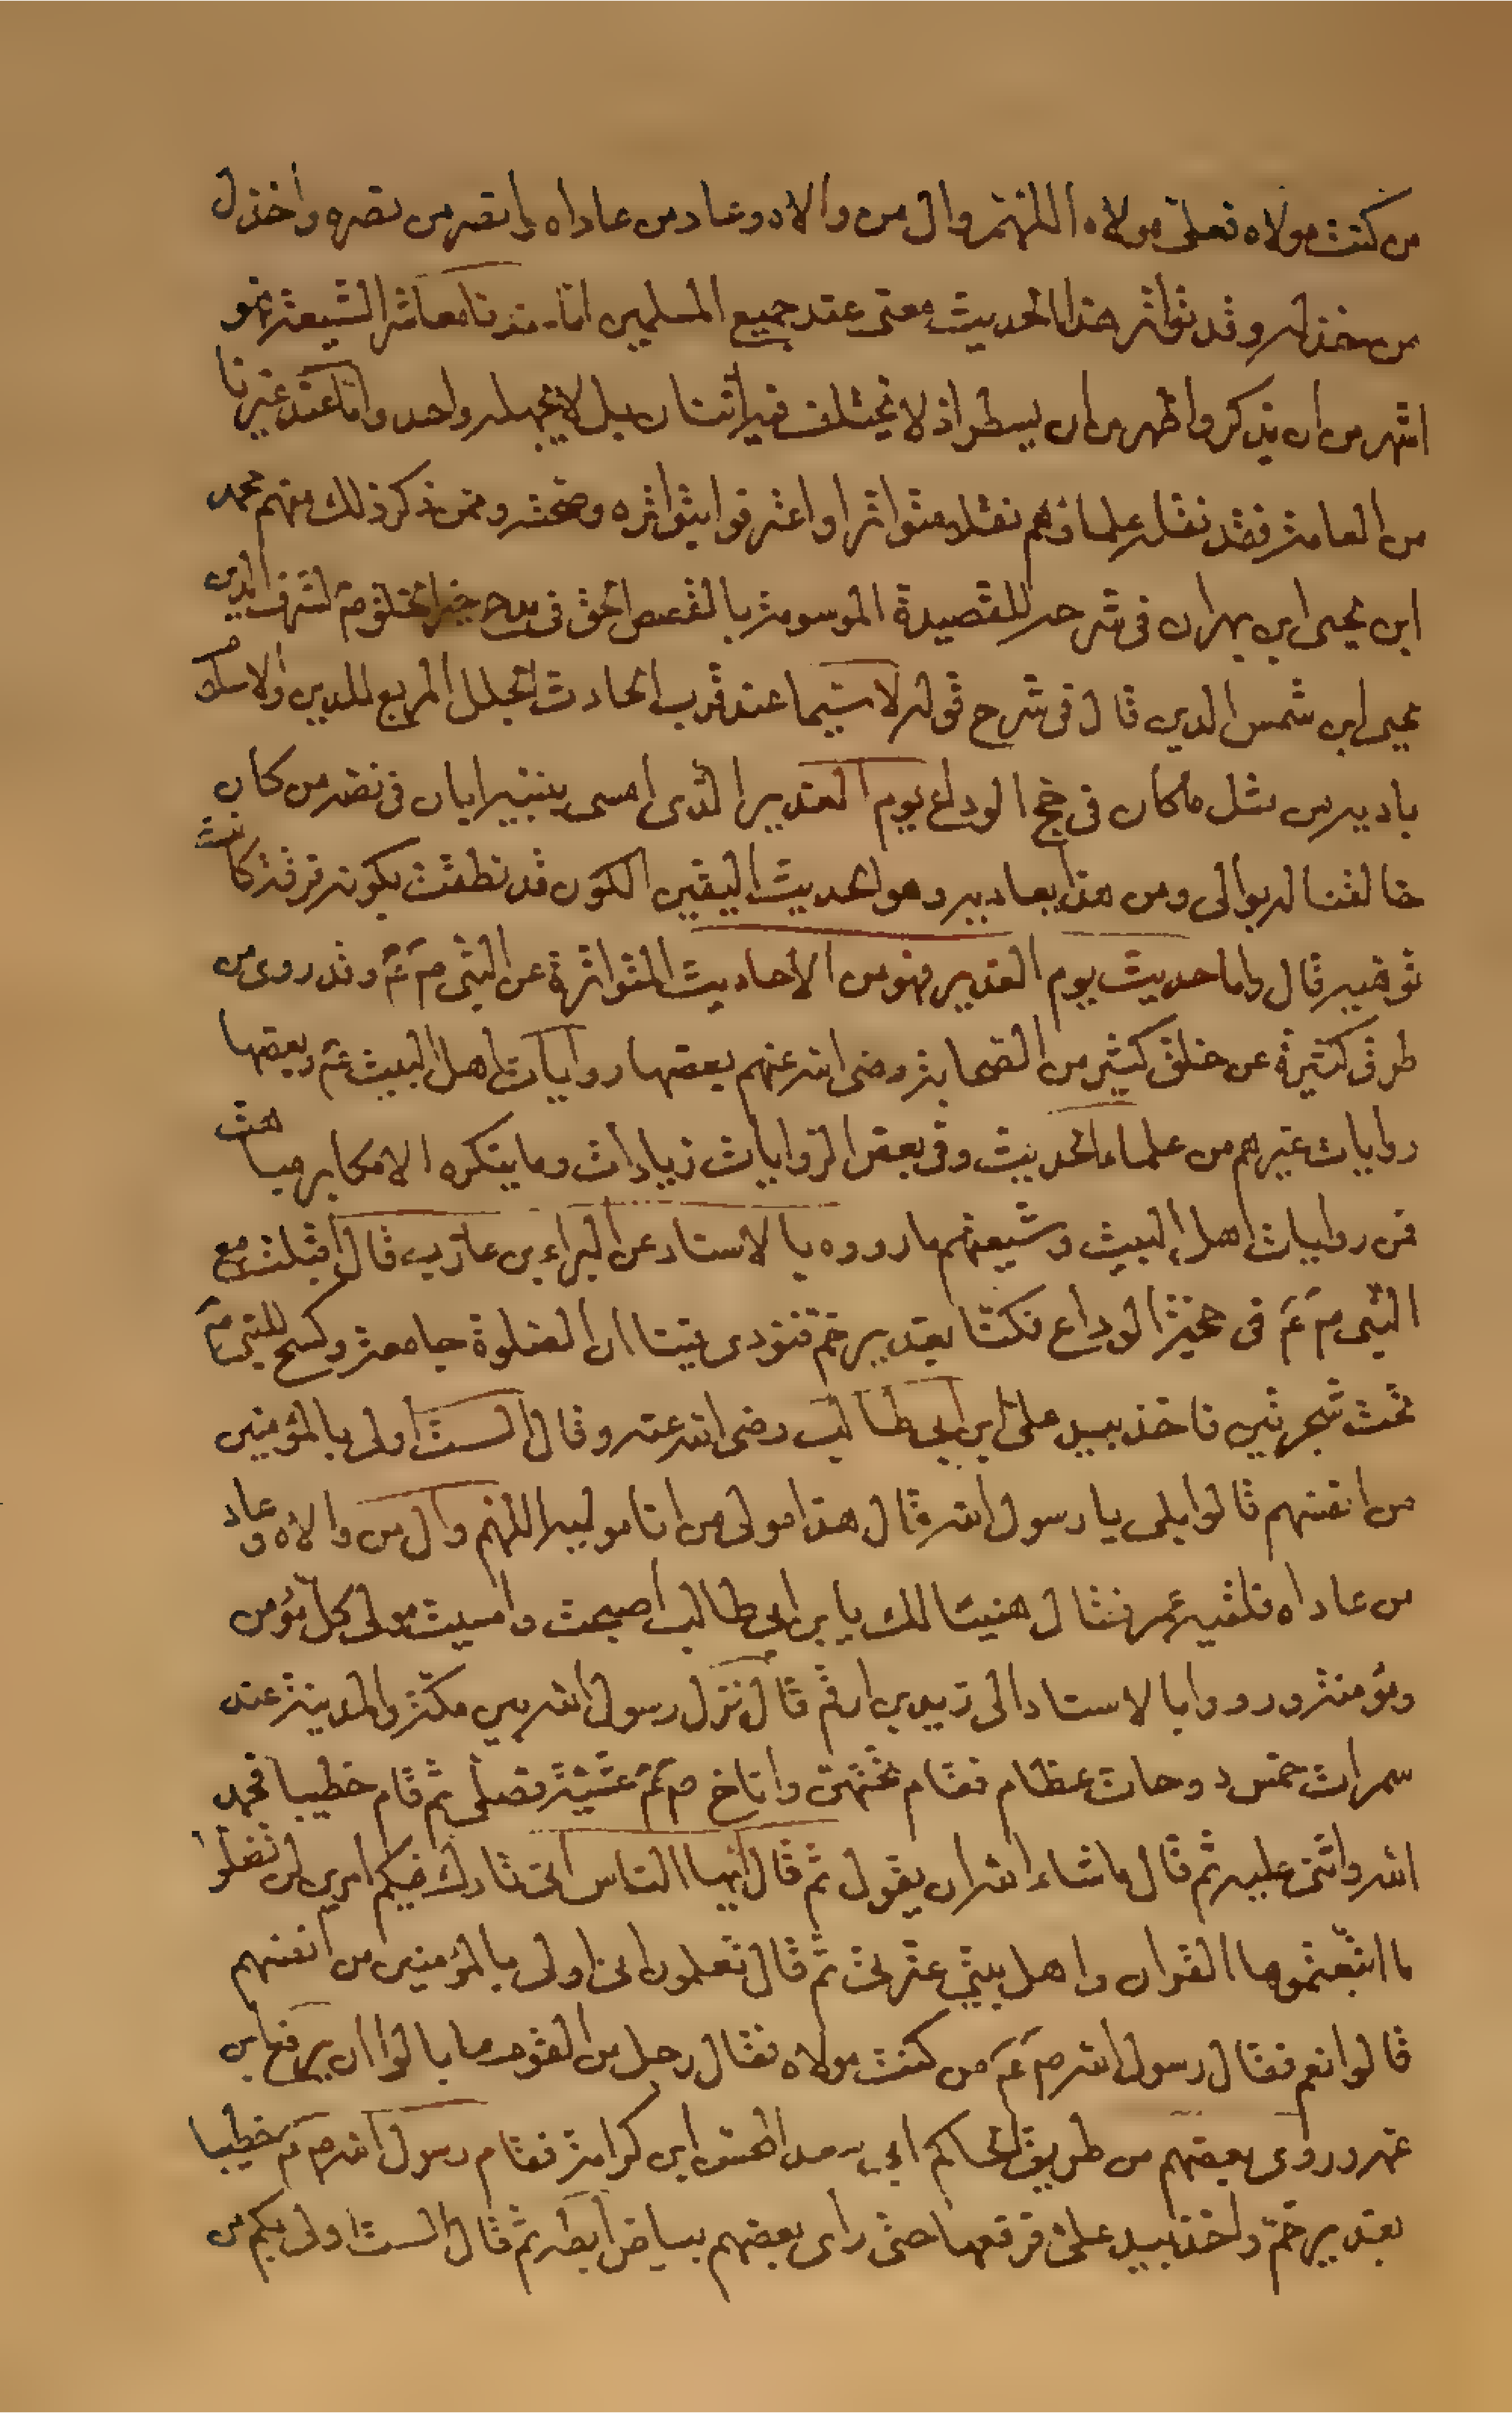 من كنت مولاه فعلى مولاه اللهم وال من والاه وعاد من عاداه وانصر من نصره واخذل
من خذله وقد تواتر هذا الحديث معنى عند جميع المسلمين اما عندنا معاشر الشيعة فهو
اشهر من ان يذكر واظهر من ان يسطر اذ لا يختلف فيه اثنان بل لا يجهله واحد واما عند غيرنا
من العامة فقد نقله علماؤهم نقلا متواترا واعترفوا بتواتره وصحته وممن ذكر ذلك منهم محمد
ابن يحيى ابن بهران فى شرحه للقصيدة الموسومة بالقصص الحق فى مدح خير الخلق صم لشرف الدين
يحيى ابن شمس الدين قال فى شرح قوله لا سيما عند قرب الحادث الجلل المريع للدين
مثل ما كان فى حج الوداع يوم الغدير الذى امسى ينبيه ابان فى نصه من كان
خالقنا له يوالى ومن هذا يعاديه وهو الحديث اليقين الكون قد نطقت بكونه فرقة كانت
توهيه قال واما حديث يوم الغدير فهو من الأحاديث المتواترة عن النبى صم عم وقد روى من
طرق كثيرة عن خلق كثير من الصحابة رضى الله عنهم بعضها روايات اهل البيت عم وبعضها
روايات غيرهم من علماء الحديث وفى بعض الروايات زيادات وما ينكره الا مكابر مباهت
فمن روايات اهل البيت وشيعتهم ما رووه بالاسناد عن البراء بن عازب قال اقبلت مع
النبى صم عم فى حجة الوداع فكنا بغدير خم فنودى فينا ان الصلوة جامعة وكسح للنبى صم
تحت شجرتين فاخذ بيد على ابن ابى طالب رضى الله عنه وقال الست اولى بالمؤمنين
من انفسهم قالوا بلى يا رسول الله قال هذا مولى من انا موليه اللهم وال من والاه وعاد
من عاداه فلقيه عمر فقال هنيئا لك يا بن ابى طالب اصبحت وامسيت مولى كل مؤمن
ومؤمنة ورووا بالاسناد الى زيد بن ارقم قال نزل رسول الله بين مكة والمدينة عند
سمرات خمس دوحات عظام فقام تحتهن واناخ صم عم عشية فصلى ثم قام خطيبا فحمد
الله واثنى عليه ثم قال ما شاء الله ان يقول ثم قال ايها الناس انى تارك فيكم امرين لن تضلوا
ما اتبعتموها القران واهل بيتى عترتى ثم قال تعلمون انى اولى بالمؤمنين من انفسهم
قالوا نعم فقال رسول الله صم عم من كنت مولاه فقال رجل من القوم ما يالوا ان يرفع ابن
عمه وروى بعضهم من طريق الحاكم ابى سعد المحسن ابن كرامة فقام رسول الله صم عم خطيبا
بغدير خم واخذ بيد على فرفعها حتى راى بعضهم بياض ابطه ثم قال الست اولى بكم من